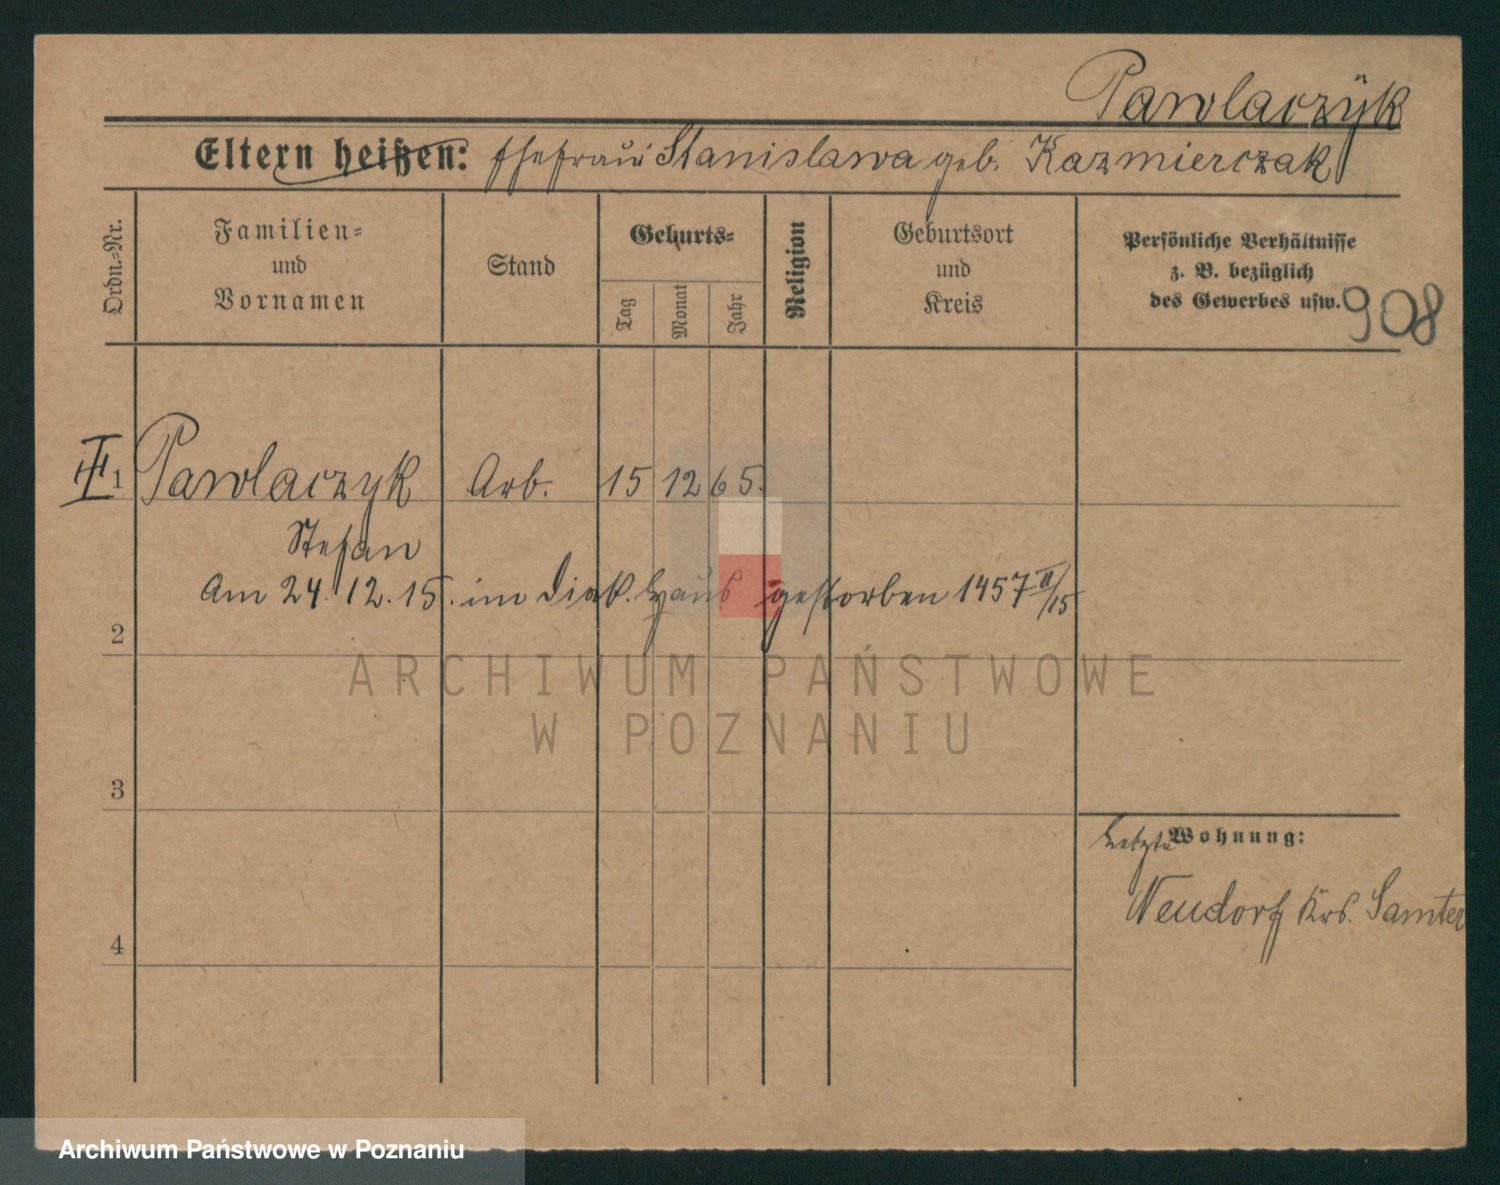 Pawlaczÿk
Eltern heißen: Ehefrau Stanislawa geb. Kazmierczak
Ordn.-Nr.
Familien-
und
Vornamen
Stand
Geburts-
Tag
Monat
Jahr
Religion
Geburtsort
und
Kreis
Persönliche Verhältnisse
z. B. bezüglich
des Gewerbes usw.
908
III
1 Pawlaczyk Arb. 15 12 65.
Stefan
Am 24.12.15. im Diak. Haus gestorben 1457 II/15
2
ARCHIWUM PAŃSTWOWE
W POZNANIU
3
Letzte Wohnung:
Neudorf Krs. Samter
4
Archiwum Państwowe w Poznaniu